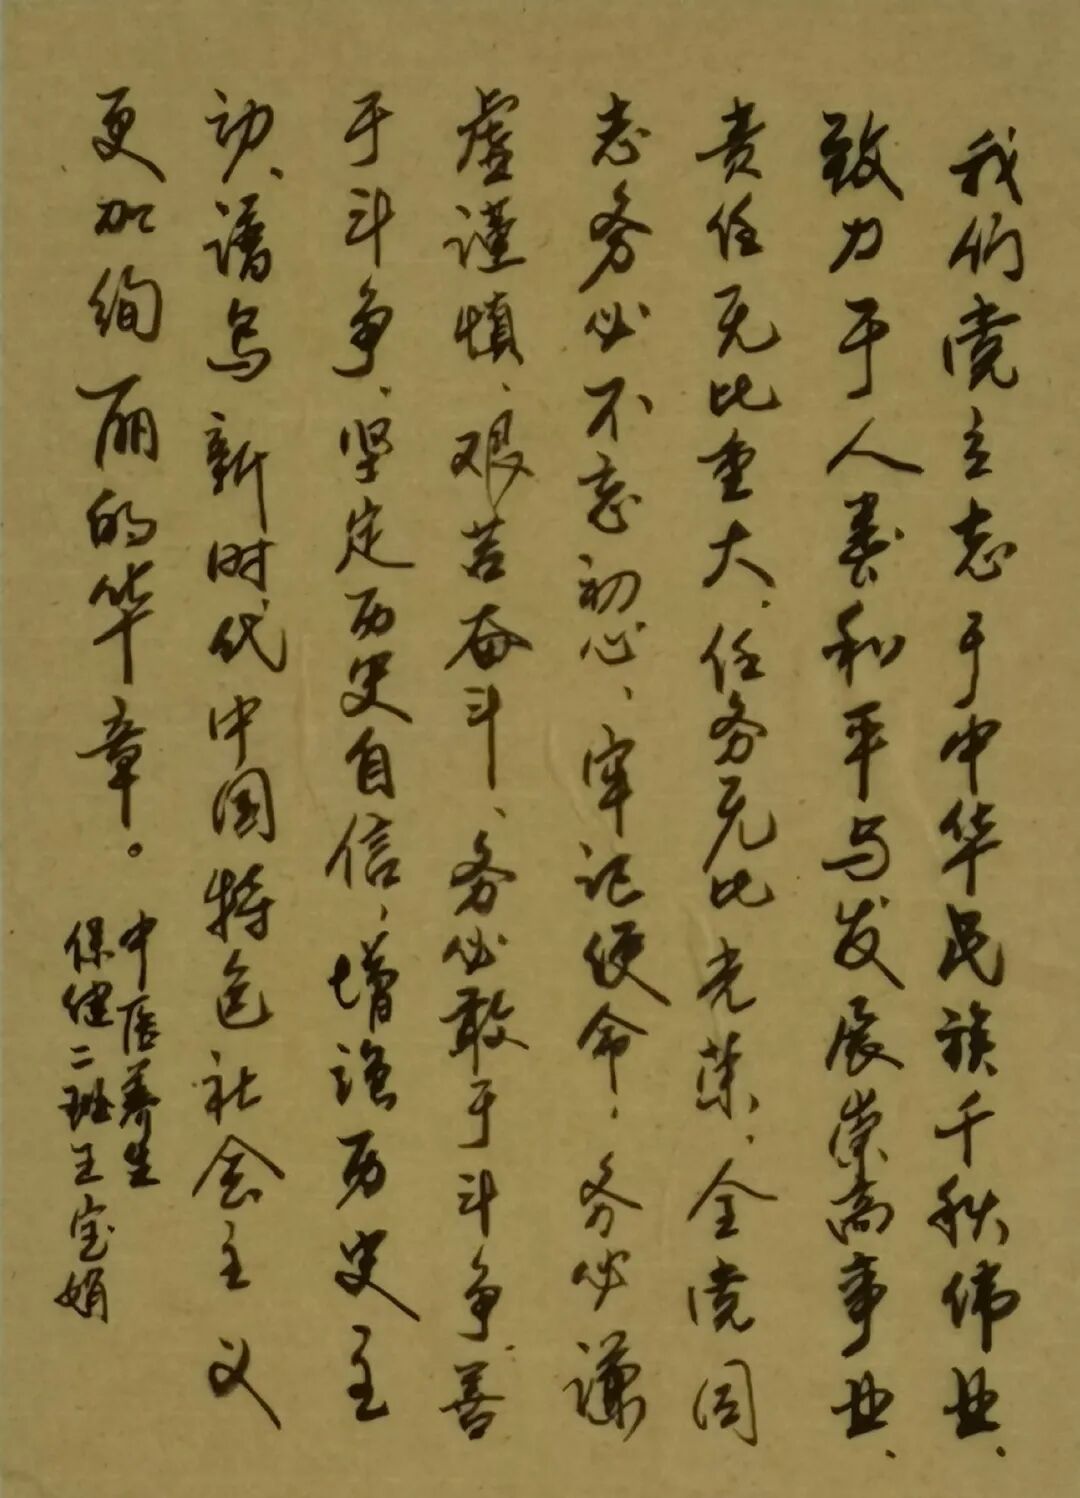 我们党立志于中华民族千秋伟业、
致力于人类和平与发展崇高事业、
责任无比重大、任务无比光荣、全党同
志务必不忘初心、牢记使命、务必谦
虚谨慎、艰苦奋斗、务必敢于斗争、善
于斗争、坚定历史自信、增强历史主
动、谱写新时代中国特色社会主义
更加绚丽的华章。
中医养生
保健二班王宝娟